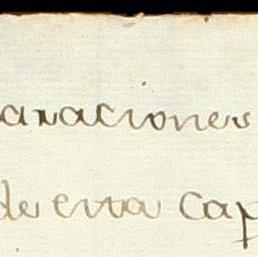 araciones
de esta Cap